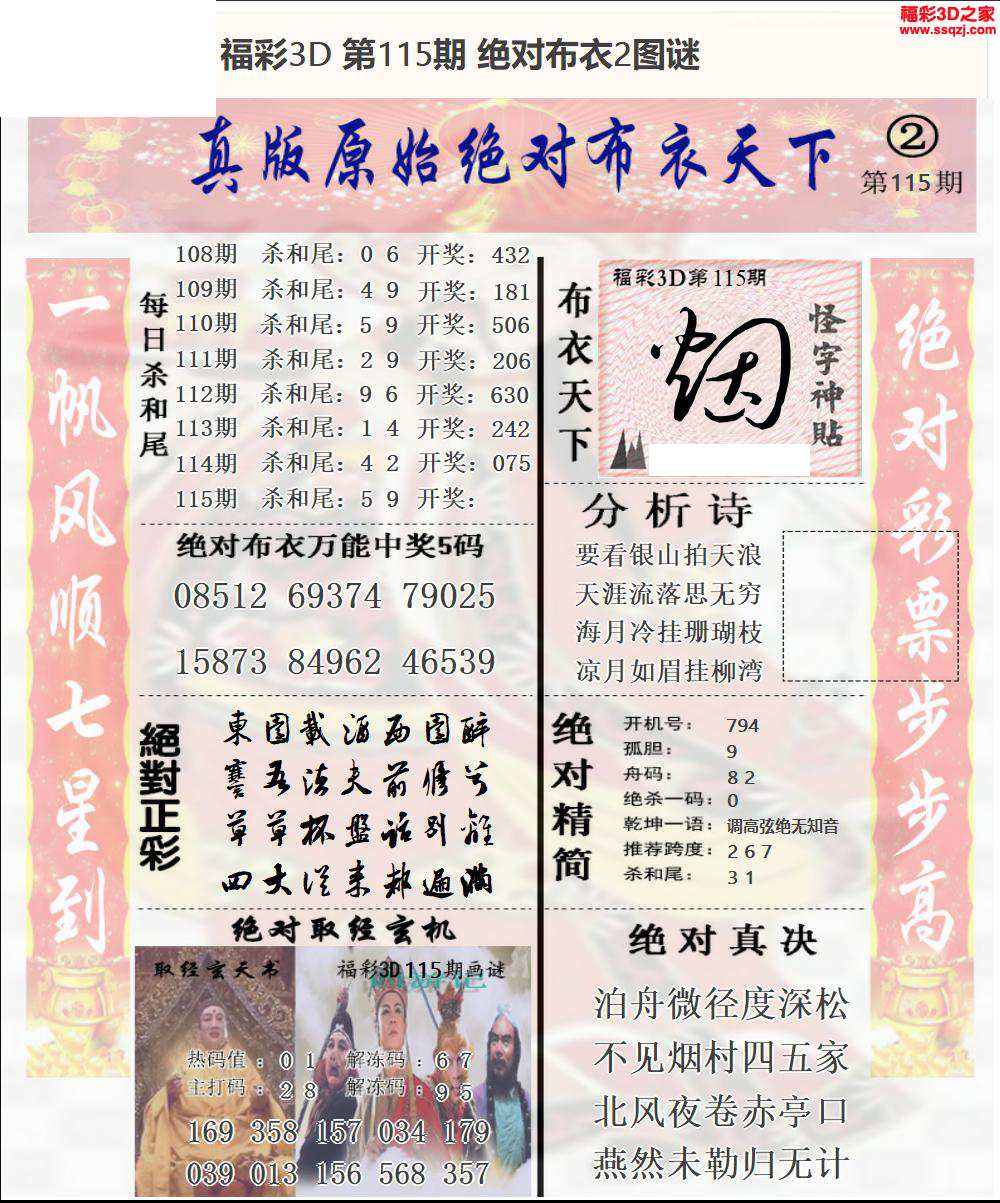 福彩3D之家
www.ssqzj.com
福彩3D 第115期 绝对布衣2图谜
真版原始绝对布衣天下
②
第115期
一帆风顺七星到
每日杀和尾
108期 杀和尾：0 6 开奖：432
109期 杀和尾：4 9 开奖：181
110期 杀和尾：5 9 开奖：506
111期 杀和尾：2 9 开奖：206
112期 杀和尾：9 6 开奖：630
113期 杀和尾：1 4 开奖：242
114期 杀和尾：4 2 开奖：075
115期 杀和尾：5 9 开奖：
绝对布衣万能中奖5码
08512 69374 79025
15873 84962 46539
絕對正彩
東園載酒西園醉
寒五法夫前修兮
草草杯盤話別離
四大從来都遍満
绝对取经玄机
取经玄天书
福彩3D115期画谜
热码值：0 1 解冻码：6 7
主打码：2 8 解冻码：9 5
169 358 157 034 179
039 013 156 568 357
布衣天下
福彩3D第115期
烟
怪字神貼
分析诗
要看银山拍天浪
天涯流落思无穷
海月冷挂珊瑚枝
凉月如眉挂柳湾
绝对精简
开机号：794
孤胆：9
舟码：8 2
绝杀一码：0
乾坤一语：调高弦绝无知音
推荐跨度：2 6 7
杀和尾：3 1
绝对真决
泊舟微径度深松
不见烟村四五家
北风夜卷赤亭口
燕然未勒归无计
绝对彩票步步高